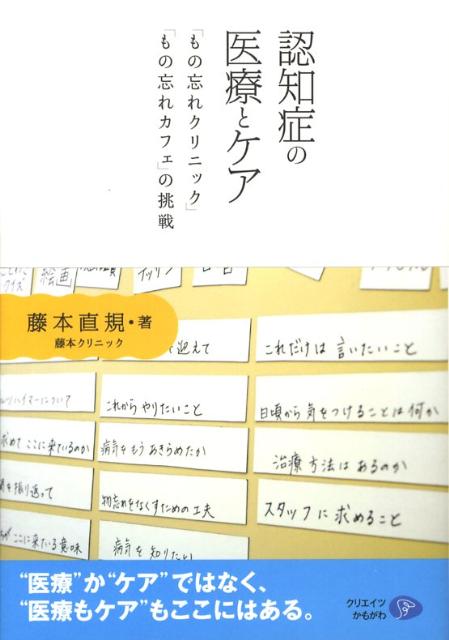 認知症の
医療とケア
「もの忘れクリニック」
「もの忘れカフェ」の挑戦
藤本直規・著
藤本クリニック
クイズ
絵画
迎えて
これだけは 言いたいこと
これから やりたいこと
日頃から 気をつけることは何か
求めて ここに来ているのか
病気をもうあきらめたか
治療方法はあるのか
を振り返って
物忘れをなくすための工夫
スタッフに 求めること
がここに来ている意味
病気を 知りたい
“医療”か“ケア”ではなく、
“医療もケア”もここにはある。
クリエイツ
かもがわ